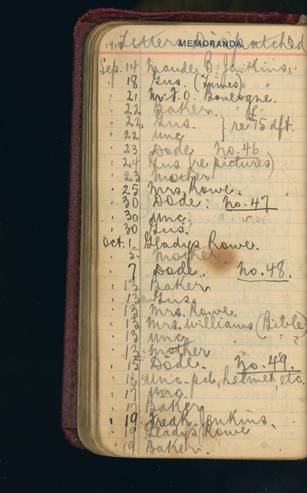 MEMORANDA
Letters Dispatched
Sep. 14 Maude B. Jenkins.
18 Gus. (Times)
21 M.F.O. Boulogne.
22 Baker
22 Gus. } re 15 dft.
22 Unc
23 Dode no. 46
24 Gus (re pictures)
23 Mother
25 Mrs. Rowe.
30 Dode: no. 47
30 Unc.
30 Gus.
Oct. 1. Gladys Rowe.
5 Mother
7 Dode. no. 48.
13 Baker
13 Gus.
13 Mrs. Rowe
13 Mrs. Williams (Bible)
13 Unc
13 Mother
15 Dode. no. 49.
16 Unc - pcl, helmet, etc.
17 Unc.
17 Baker
19 Jenkins.
19 Gladys Rowe
19 Baker.